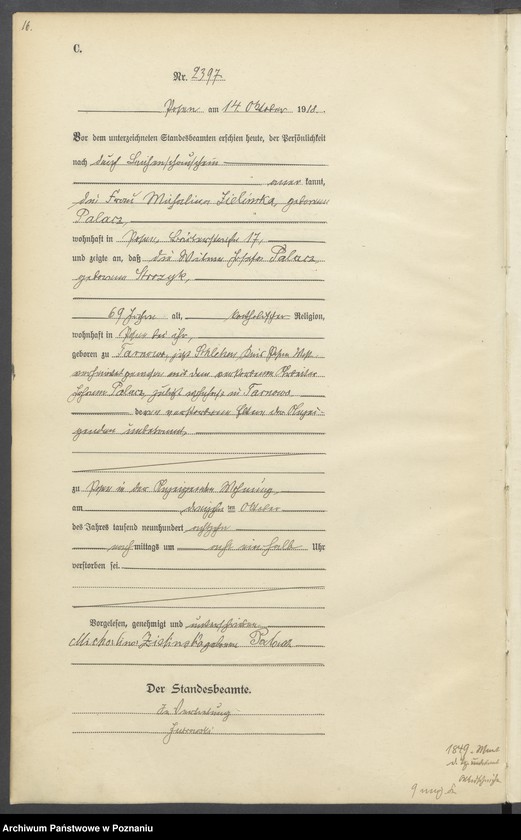 16.
C.
Nr. 2397
Posen am 14 Oktober 1918.
Vor dem unterzeichneten Standesbeamten erschien heute, der Persönlichkeit
nach durch
anerkannt,
die Frau Michalina Zielinska, geborene
Palacz,
wohnhaft in Posen, 17,
und zeigte an, daß die Witwe Josefa Palacz,
geborene Strozyk,
69 Jahre alt, katholischer Religion,
wohnhaft in Posen bei ihr,
geboren zu Tarnowo, jetzt Schlehen, Kreis Posen West
verheiratet gewesen mit dem verstorbenen Arbeiter
Johann Palacz, zuletzt wohnhaft in Tarnowo
deren verstorbene Eltern der Anzei-
genden unbekannt,
zu Posen in der Anzeigenden Wohnung,
am dreizehn ten Oktober
des Jahres tausend neunhundert achtzehn
nachmittags um acht ein halb Uhr
verstorben sei.
Vorgelesen, genehmigt und unterschrieben
Michalina Zielinska geborene Palacz
Der Standesbeamte.
In Vertretung
1849
9
Archiwum Państwowe w Poznaniu